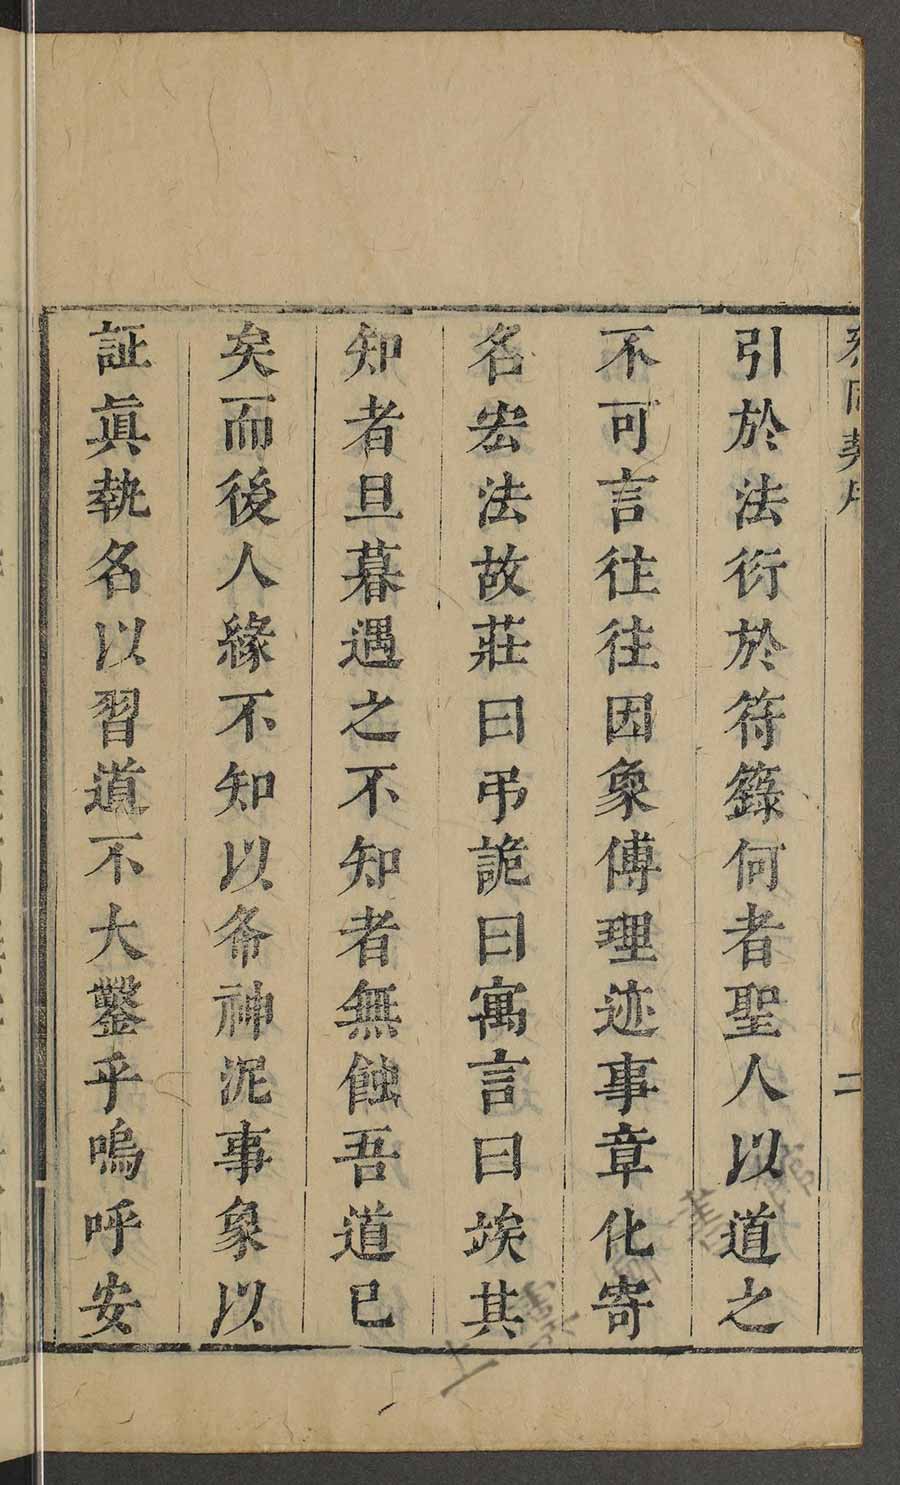 同契序
二
引於法衍於符籙何者聖人以道之
不可言往往因象傅理迹事章化寄
名宏法故莊曰弔詭曰寓言曰竢其
知者旦暮遇之不知者無蝕吾道已
矣而後人緣不知以希神泥事象以
証眞執名以習道不大鑿乎嗚呼安